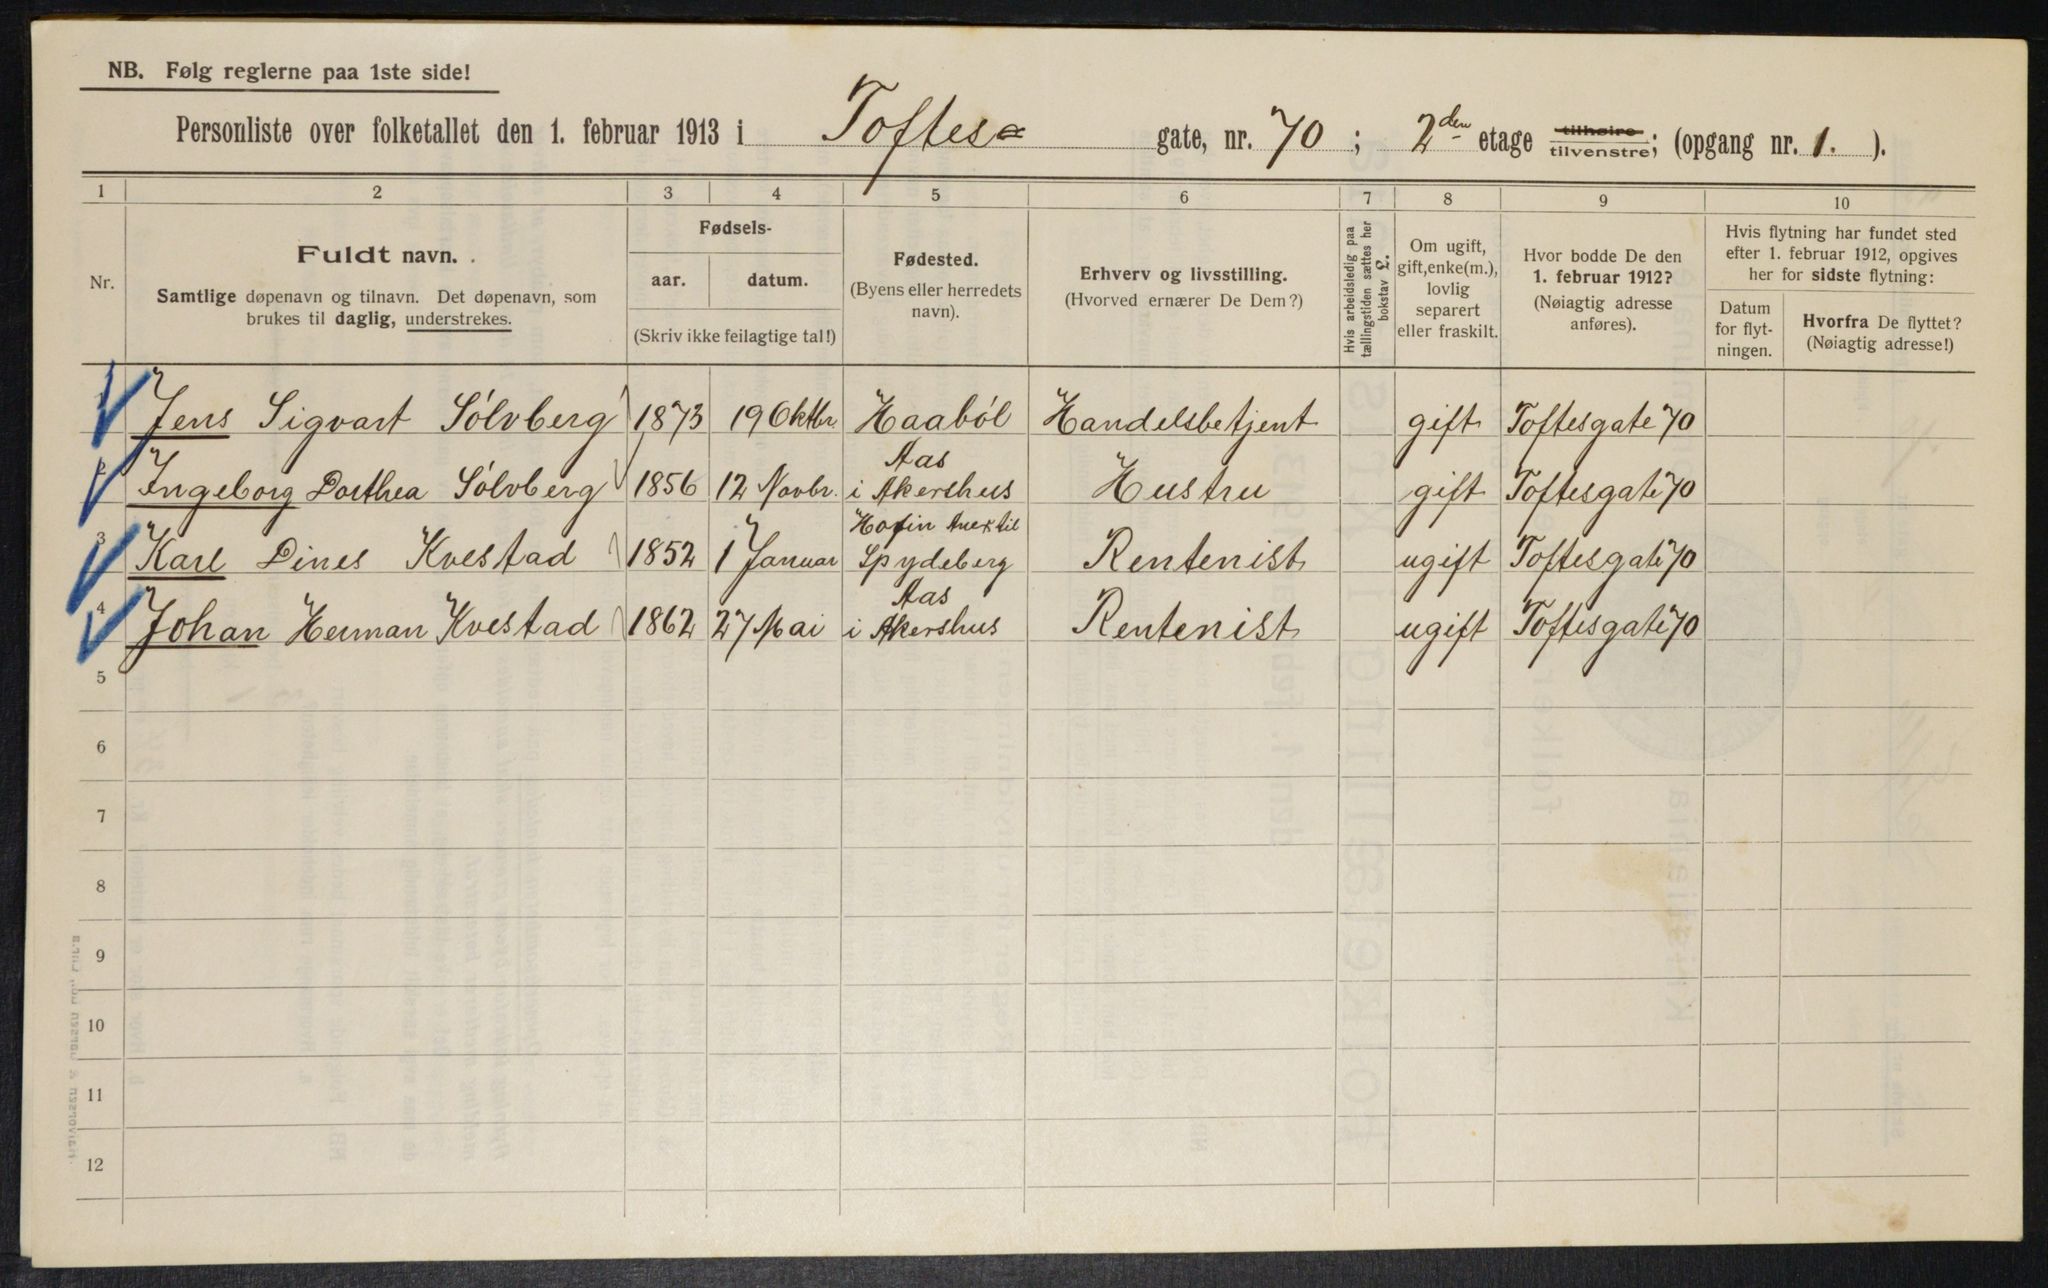 NB. Følg reglerne paa 1ste side!
Personliste over folketallet den 1. februar 1913 i Toftes gate, nr. 70; 2den etage tilhøire tilvenstre; (opgang nr. 1.).
1 2 3 4 5 6 7 8 9 10
Nr.
Fuldt navn.
Samtlige døpenavn og tilnavn. Det døpenavn, som
brukes til daglig, understrekes.
Fødsels-
aar. datum.
(Skriv ikke feilagtige tal!)
Fødested.
(Byens eller herredets
navn).
Erhverv og livsstilling.
(Hvorved ernærer De Dem?)
Hvis arbeidsledig paa
tællingstiden sættes her
bokstav L.
Om ugift,
gift, enke(m.),
lovlig
separert
eller fraskilt.
Hvor bodde De den
1. februar 1912?
(Nøiagtig adresse
anføres).
Hvis flytning har fundet sted
efter 1. februar 1912, opgives
her for sidste flytning:
Datum
for flyt-
ningen.
Hvorfra De flyttet?
(Nøiagtig adresse!)
1 Jens Sigvart Sólvberg 1873 19 Oktbr. Haaból Handelsbetjent gift Toftesgate 70
2 Ingeborg Dorthea Sólvberg 1856 12 Novbr. Aas
i Akershus Hustru gift Toftesgate 70
3 Karl Dines Kvestad 1852 1 Januar
Spydeberg Rentenist ugift Toftesgate 70
4 Johan Herman Kvestad 1862 27 Mai Aas
i Akershus Rentenist ugift Toftesgate 70
5
6
7
8
9
10
11
12